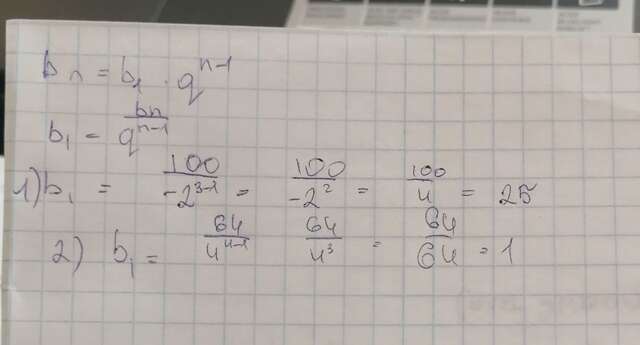 bn = b1 · q^(n-1)
b1 = bn / q^(n-1)
1) b1 = 100 / -2^(3-1) = 100 / -2^2 = 100 / 4 = 25
2) b1 = 64 / 4^(4-1) 64 / 4^3 = 64 / 64 = 1